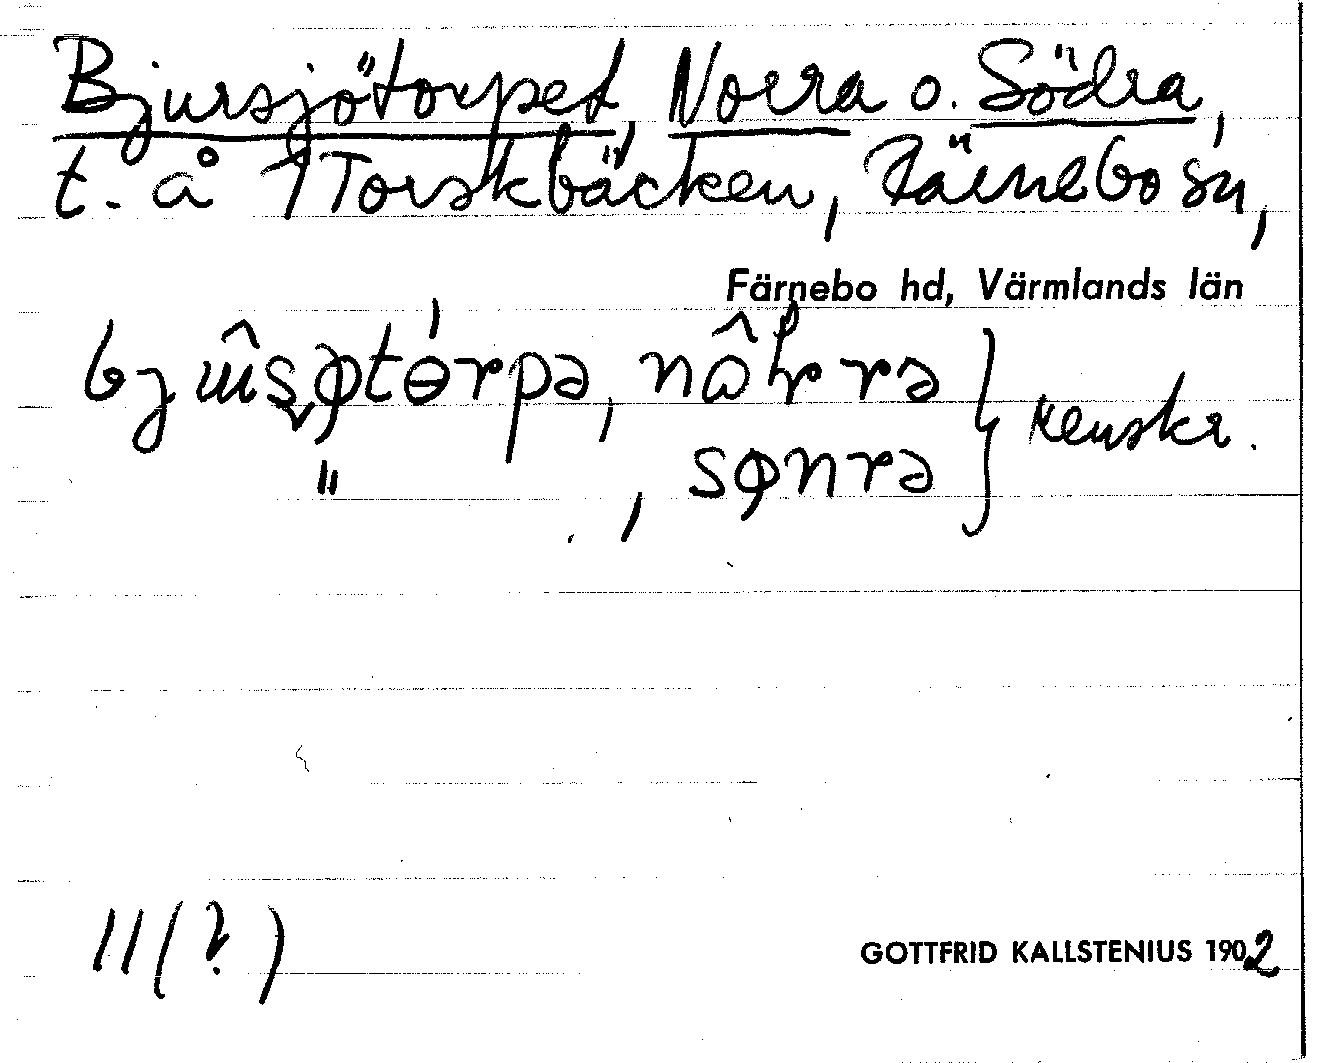 Bjursjötorpet, Norra o. Södra,
t. å 1 Torskbäcken, Färnebo sn,
Färnebo hd, Värmlands län
nôhrra
" , sønrə
11(?)
GOTTFRID KALLSTENIUS 1902